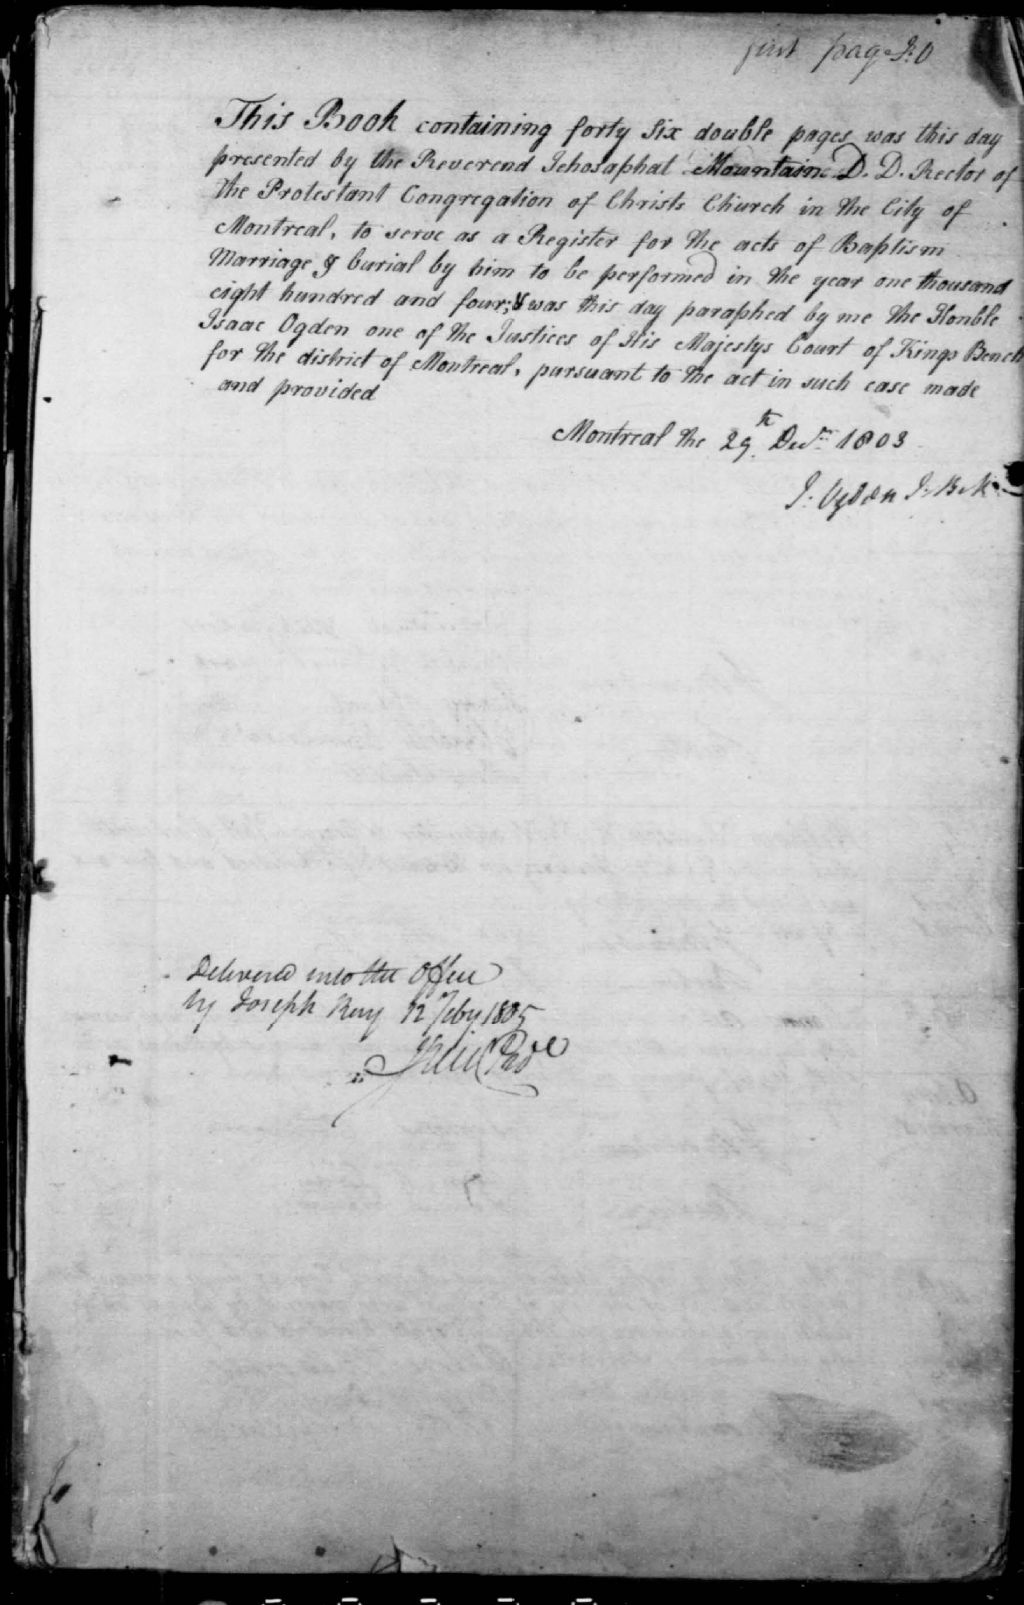 first page I: O
This Book containing forty six double pages was this day
presented by the Reverend Jehosaphat Mountain D. D. Rector of
the Protestant Congregation of Christs Church in the City of
Montreal, to serve as a Register for the acts of Baptism
Marriage & burial by him to be performed in the year one thousand
eight hundred and four; & was this day paraphed by me the Honble
Isaac Ogden one of the Justices of His Majestys Court of Kings Bench
for the district of Montreal, pursuant to the act in such case made
and provided
Montreal the 29th Decr 1803
I. Ogden J. B. K.
Delivered into the Office
by Joseph 12 Feby 1805